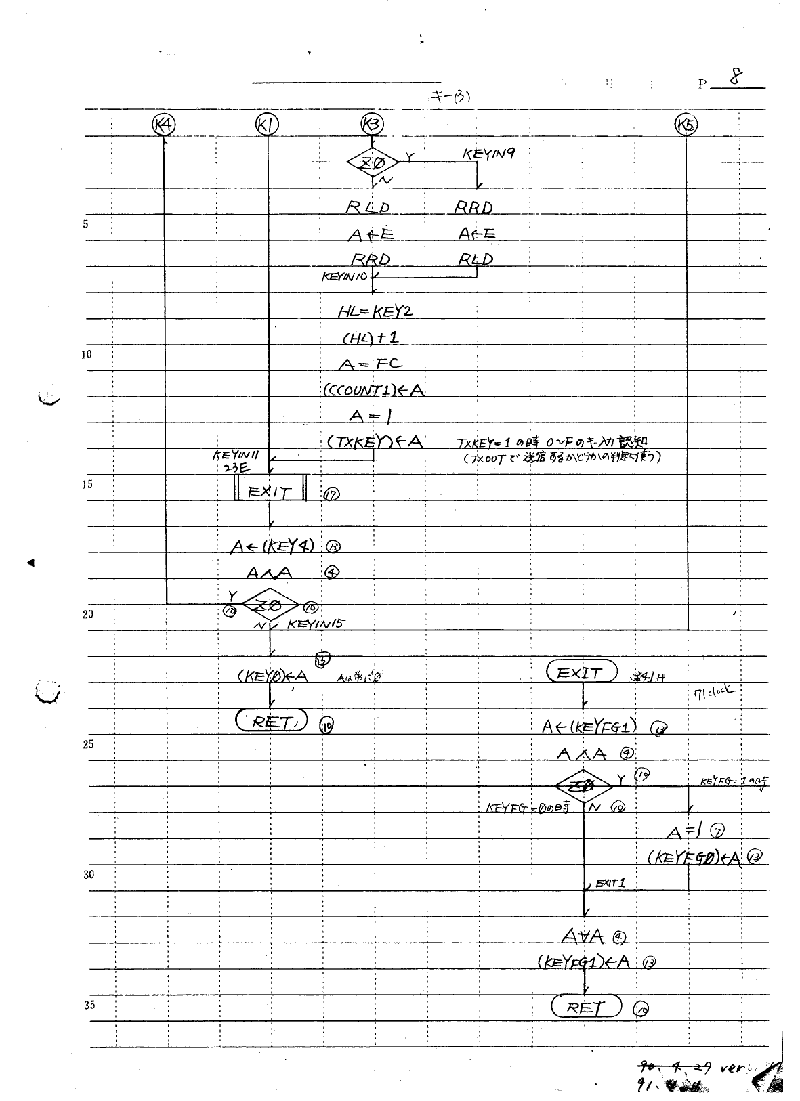 P 8
キー(3)
K4 K1 K3 K5
ZØ Y KEYIN9
N
RLD RRD
5
A←E A←E
RRD RLD
KEYIN10
HL=KEY2
(HL)+1
10
A=FC
(CCOUNT1)←A
A=1
(TXKEY)←A TXKEY=1の時 0〜Fのキー入力認知
KEYIN11 (TXOUTで送信するかどうかの判定に使う)
23E
15
EXIT ⑰
A←(KEY4) ⑬
A∧A ④
Y
ZØ
20
N KEYIN15
(KEYØ)←A
EXIT
71clock
RET ⑩
25
A←(KEYFG1) ⑬
A∧A ④
ZØ Y
KEYFG=0の時 N ⑩
A=1 ⑦
(KEYFGØ)←A ⑬
30
EXIT1
A∀A ④
(KEYFG1)←A ⑬
35
RET ⑩
90. 4. 29 ver.
91.